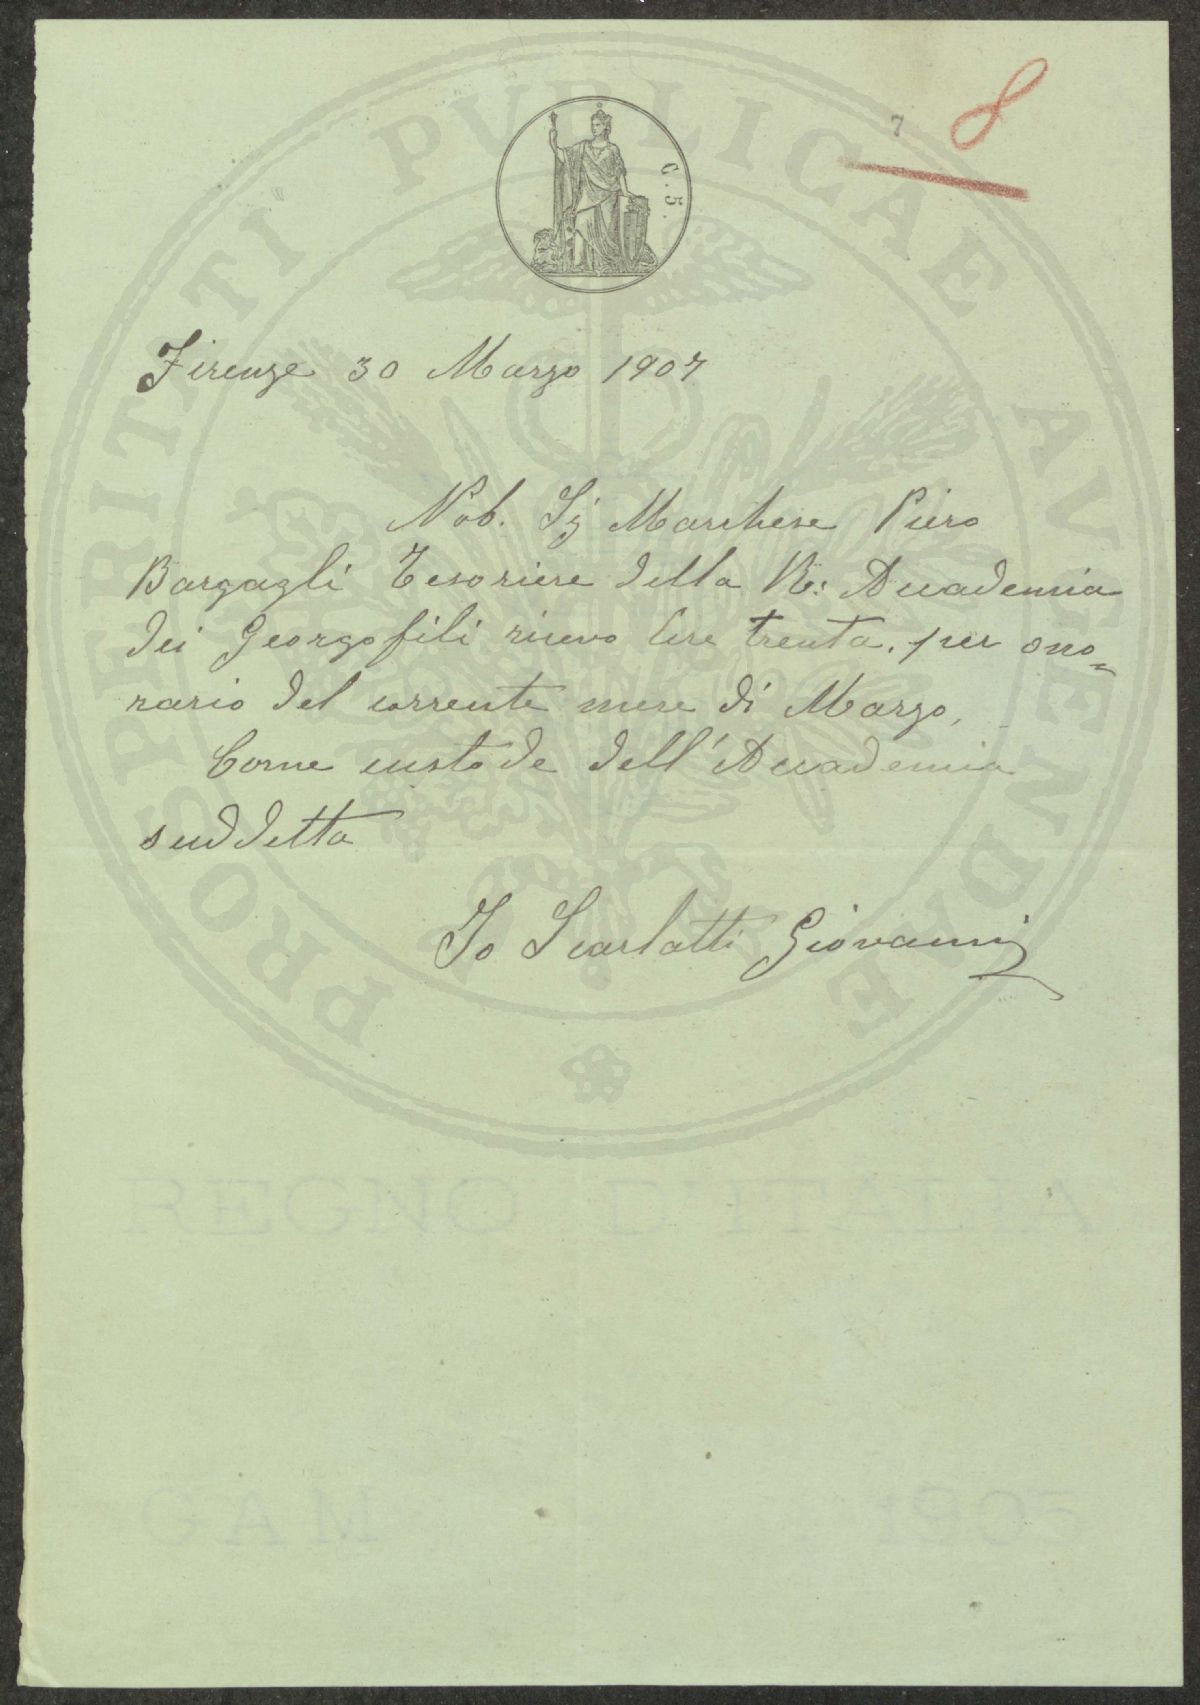 8
7
C. 5.
PROSPERITATI PUBLICAE AVGENDAE
Firenze 30 Marzo 1907
Nob. Sig Marchese Piero
Bargagli Tesoriere della R: Accademia
dei Georgofili ricevo lire trenta, per ono=
rario del corrente mese di Marzo,
Come custode dell'Accademia
suddetta
Io Scarlatti Giovanni
REGNO D'ITALIA
GAM 1905